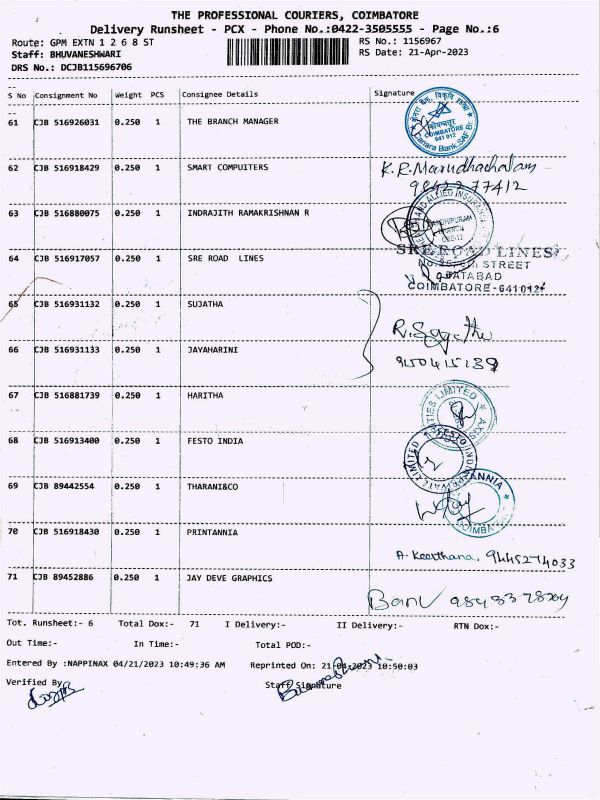 THE PROFESSIONAL COURIERS, COIMBATORE
Delivery Runsheet - PCX - Phone No.:0422-3505555 - Page No.:6
Route: GPM EXTN 1 2 6 8 ST
RS No.: 1156967
Staff: BHUVANESHWARI
RS Date: 21-Apr-2023
DRS No.: DCJB115696706
S No Consignment No Weight PCS Consignee Details Signature
61 CJB 516926031 0.250 1 THE BRANCH MANAGER
COIMBATORE
641 012
Canara Bank SAF Br.
62 CJB 516918429 0.250 1 SMART COMPUITERS
K.R. Marudhachalam
98422 77412
63 CJB 516880075 0.250 1 INDRAJITH RAMAKRISHNAN R
64 CJB 516917057 0.250 1 SRE ROAD LINES
SRE ROAD LINES
STREET
COIMBATORE - 641012
65 CJB 516931132 0.250 1 SUJATHA
R. Sujatha
66 CJB 516931133 0.250 1 JAYAHARINI
67 CJB 516881739 0.250 1 HARITHA
LIMITED
AXIS
68 CJB 516913400 0.250 1 FESTO INDIA
FESTO INDIA PRIVATE LIMITED
69 CJB 89442554 0.250 1 THARANI&CO
70 CJB 516918430 0.250 1 PRINTANNIA
A. Keerthana. 9445274033
71 CJB 89452886 0.250 1 JAY DEVE GRAPHICS
Tot. Runsheet:- 6 Total Dox:- 71 I Delivery:- II Delivery:- RTN Dox:-
Out Time:- In Time:- Total POD:-
Entered By :NAPPINAX 04/21/2023 10:49:36 AM Reprinted On: 21-04-2023 10:50:03
Verified By
Staff Signature